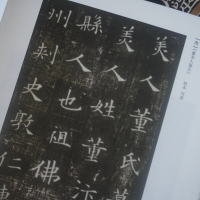 美人董氏墓
美人姓董汴
縣人也祖佛
州刾史敦仁